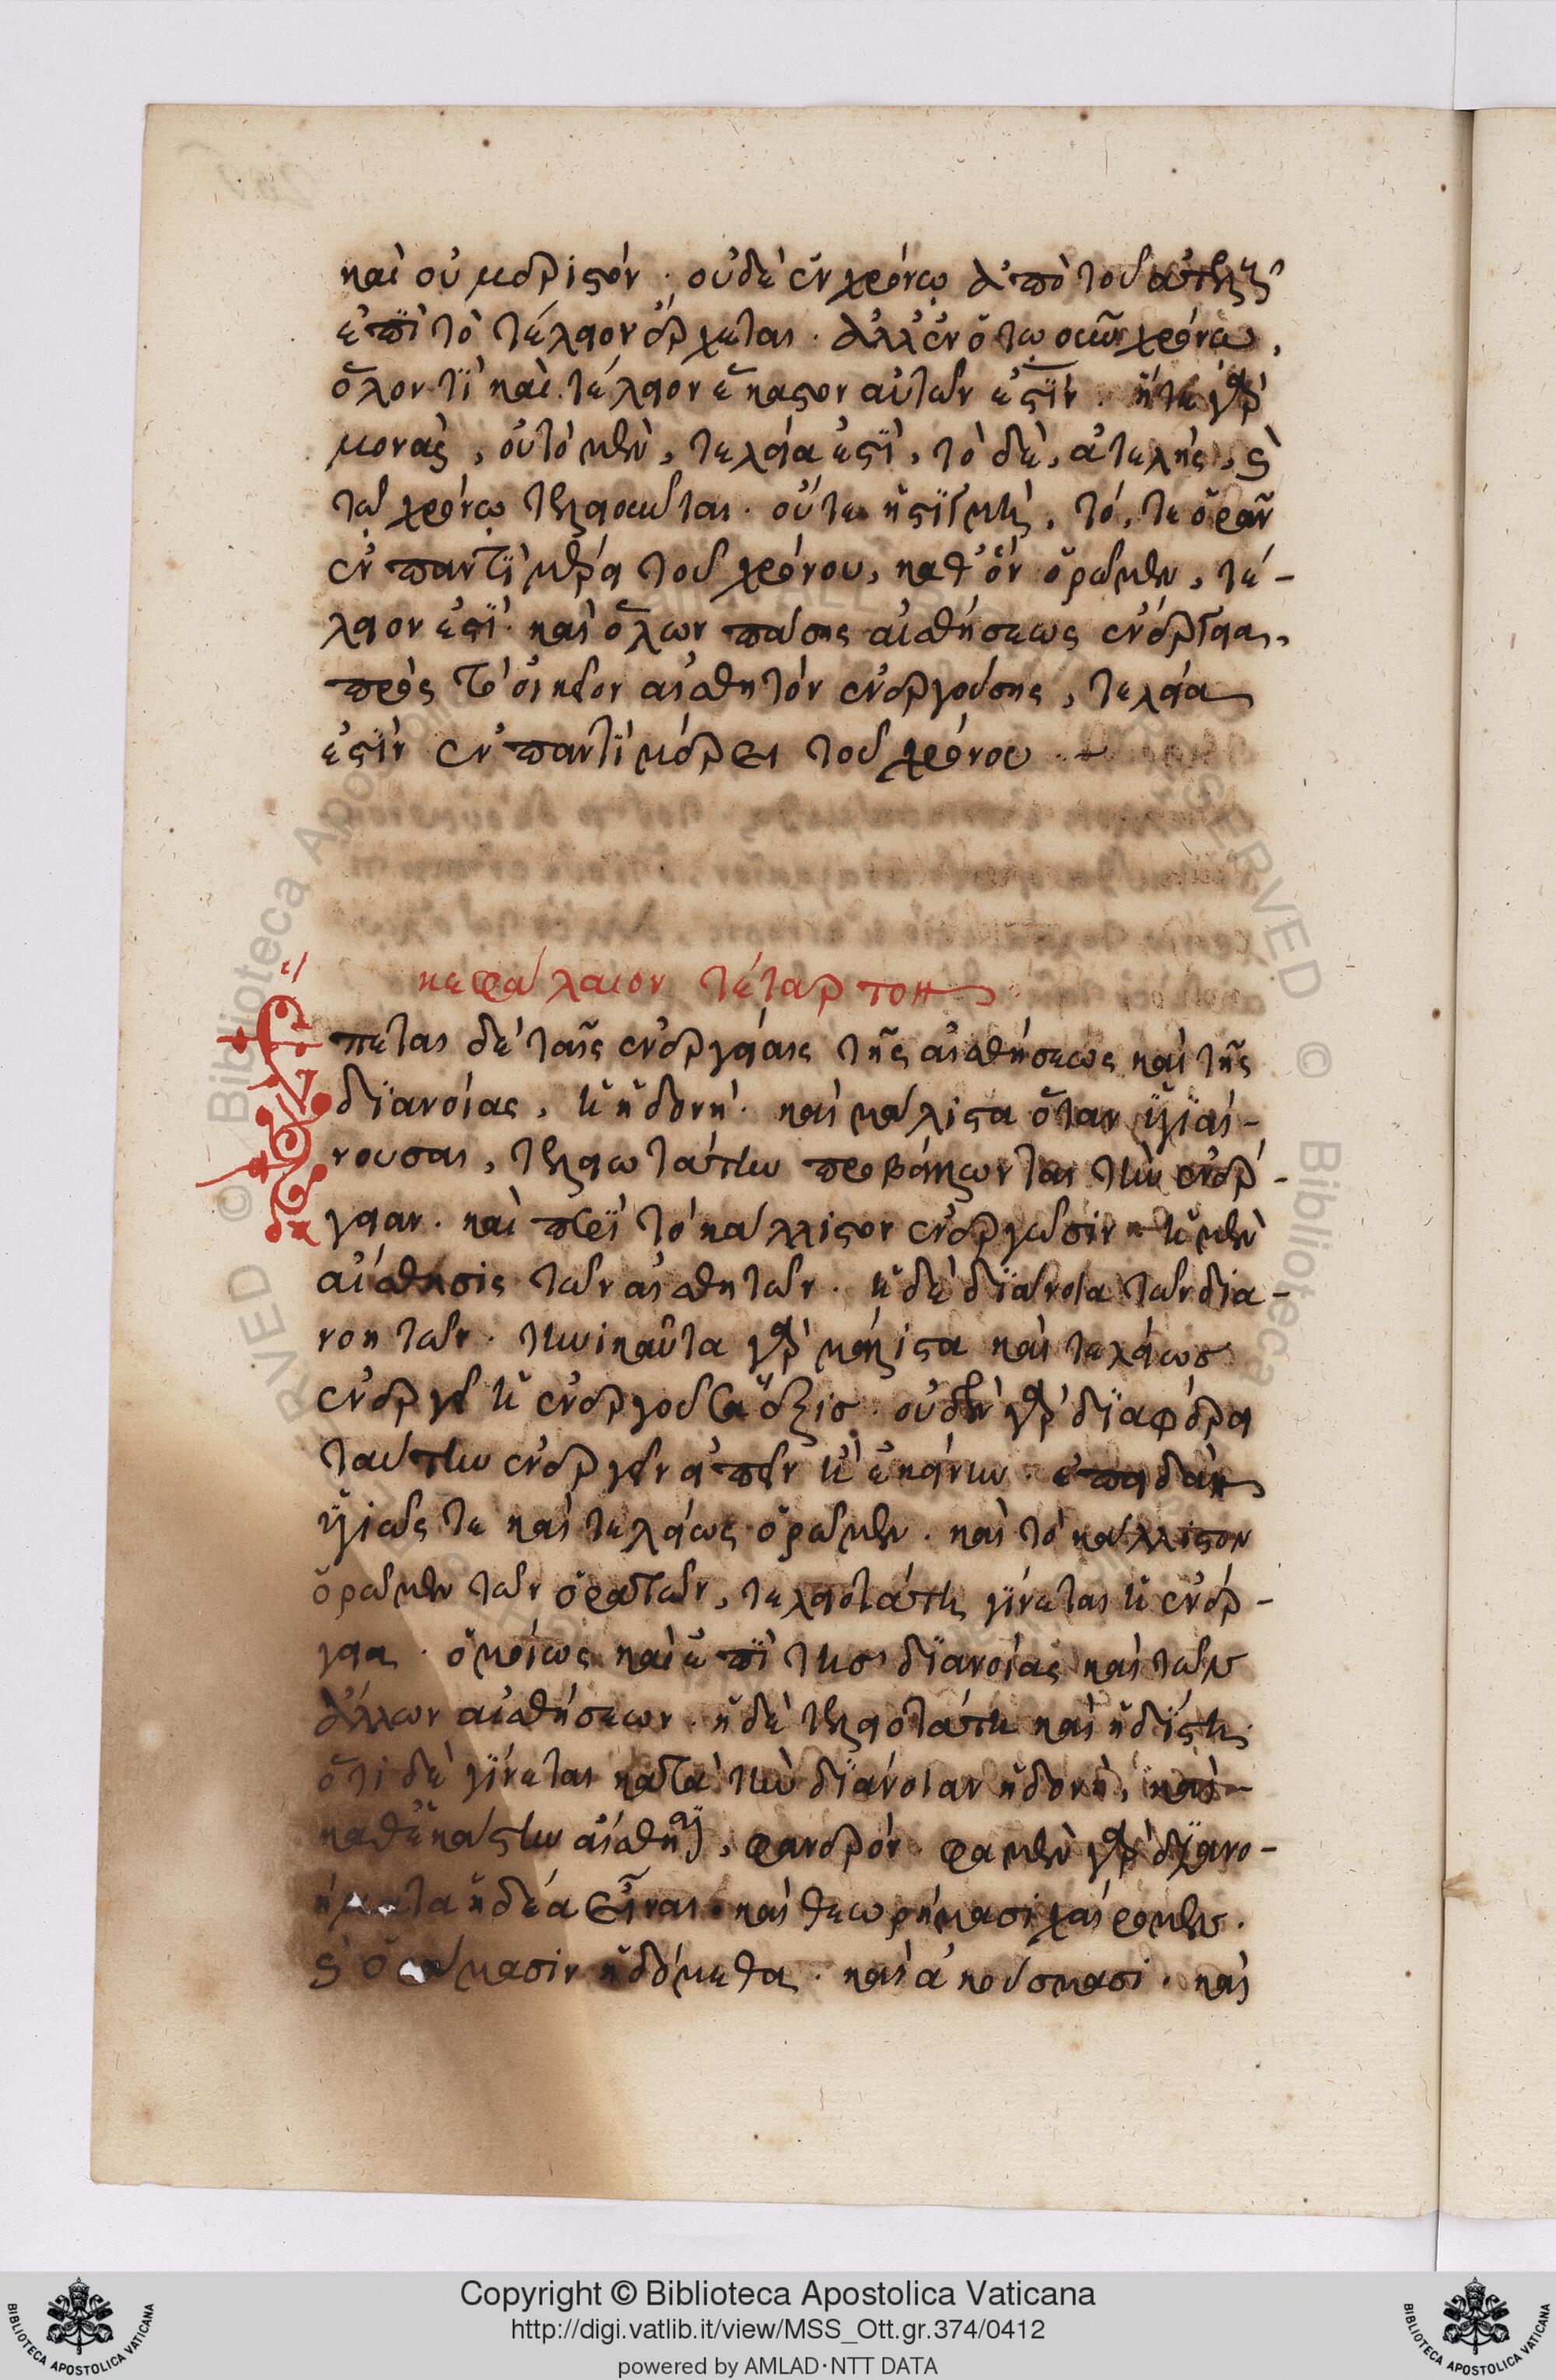 καὶ οὐ μεριστόν · οὐδὲ ἐν χρόνῳ ἀπὸ τοῦ ἀτελοῦς
ἐπὶ τὸ τέλειον ἔρχεται · ἀλλ' ἐν ὅτῳ οὖν χρόνῳ,
ὅλον τὶ καὶ τέλειον ἕκαστον αὐτῶν ἐστίν · ἥτε γὰρ
μονὰς, οὐ τὸ μὲν, τελεία ἐστὶ, τὸ δὲ, ἀτελής, καὶ
τῷ χρόνῳ τελειοῦται · οὔτε ἡ στιγμὴ, τό, τε ὁρᾶν
ἐν παντὶ μέρει τοῦ χρόνου, καθ' ὃν ὁρῶμεν, τέ-
λειον ἐστὶ · καὶ ὅλων πάσης αἰσθήσεως ἐνέργεια,
πρὸς τὸ οἰκεῖον αἰσθητὸν ἐνεργούσης, τελεία
ἐστὶν ἐν παντὶ μέρει τοῦ χρόνου · ~
κεφάλαιον τέταρτον
Ἕ
πεται δὲ ταῖς ἐνεργείαις τῆς αἰσθήσεως καὶ τῆς
διανοίας, ἡ ἡδονή · καὶ μάλιστα ὅταν ὑγιαί-
νουσαι, τελειωτάτην προβάλλωνται τὴν ἐνέρ-
γειαν · καὶ περὶ τὸ κάλλιστον ἐνεργῶσιν · ἡ μὲν
αἴσθησις τῶν αἰσθητῶν · ἡ δὲ διάνοια τῶν δια-
νοητῶν · τηνικαῦτα γὰρ μάλιστα καὶ τελείως
ἐνεργεῖ ἡ ἐνεργοῦσα ἕξις · οὐδὲν γὰρ διαφέρει
ταύτην ἐνεργεῖν εἰπεῖν ἢ ἐκείνην · ἐπειδὰν
ὑγιῶς τε καὶ τελείως ὁρῶμεν · καὶ τὸ κάλλιστον
ὁρῶμεν τῶν ὁρατῶν, τελειοτάτη γίνεται ἡ ἐνέρ-
γεια · ὁμοίως καὶ ἐπὶ τῆς διανοίας καὶ τῶν
ἄλλων αἰσθήσεων · ἡ δὲ τελειοτάτη καὶ ἡδίστη
ὅτι δὲ γίνεται κατὰ τὴν διάνοιαν ἡδονὴ, καὶ
καθ' ἑκάστην αἴσθησιν, φανερόν · φαμὲν γὰρ διανο-
ήματα ἡδέα εἶναι · καὶ θεωρήμασι χαίρομεν ·
καὶ ὁράμασιν ἡδόμεθα · καὶ ἀκούσμασι · καὶ
Copyright © Biblioteca Apostolica Vaticana
http://digi.vatlib.it/view/MSS_Ott.gr.374/0412
powered by AMLAD·NTT DATA